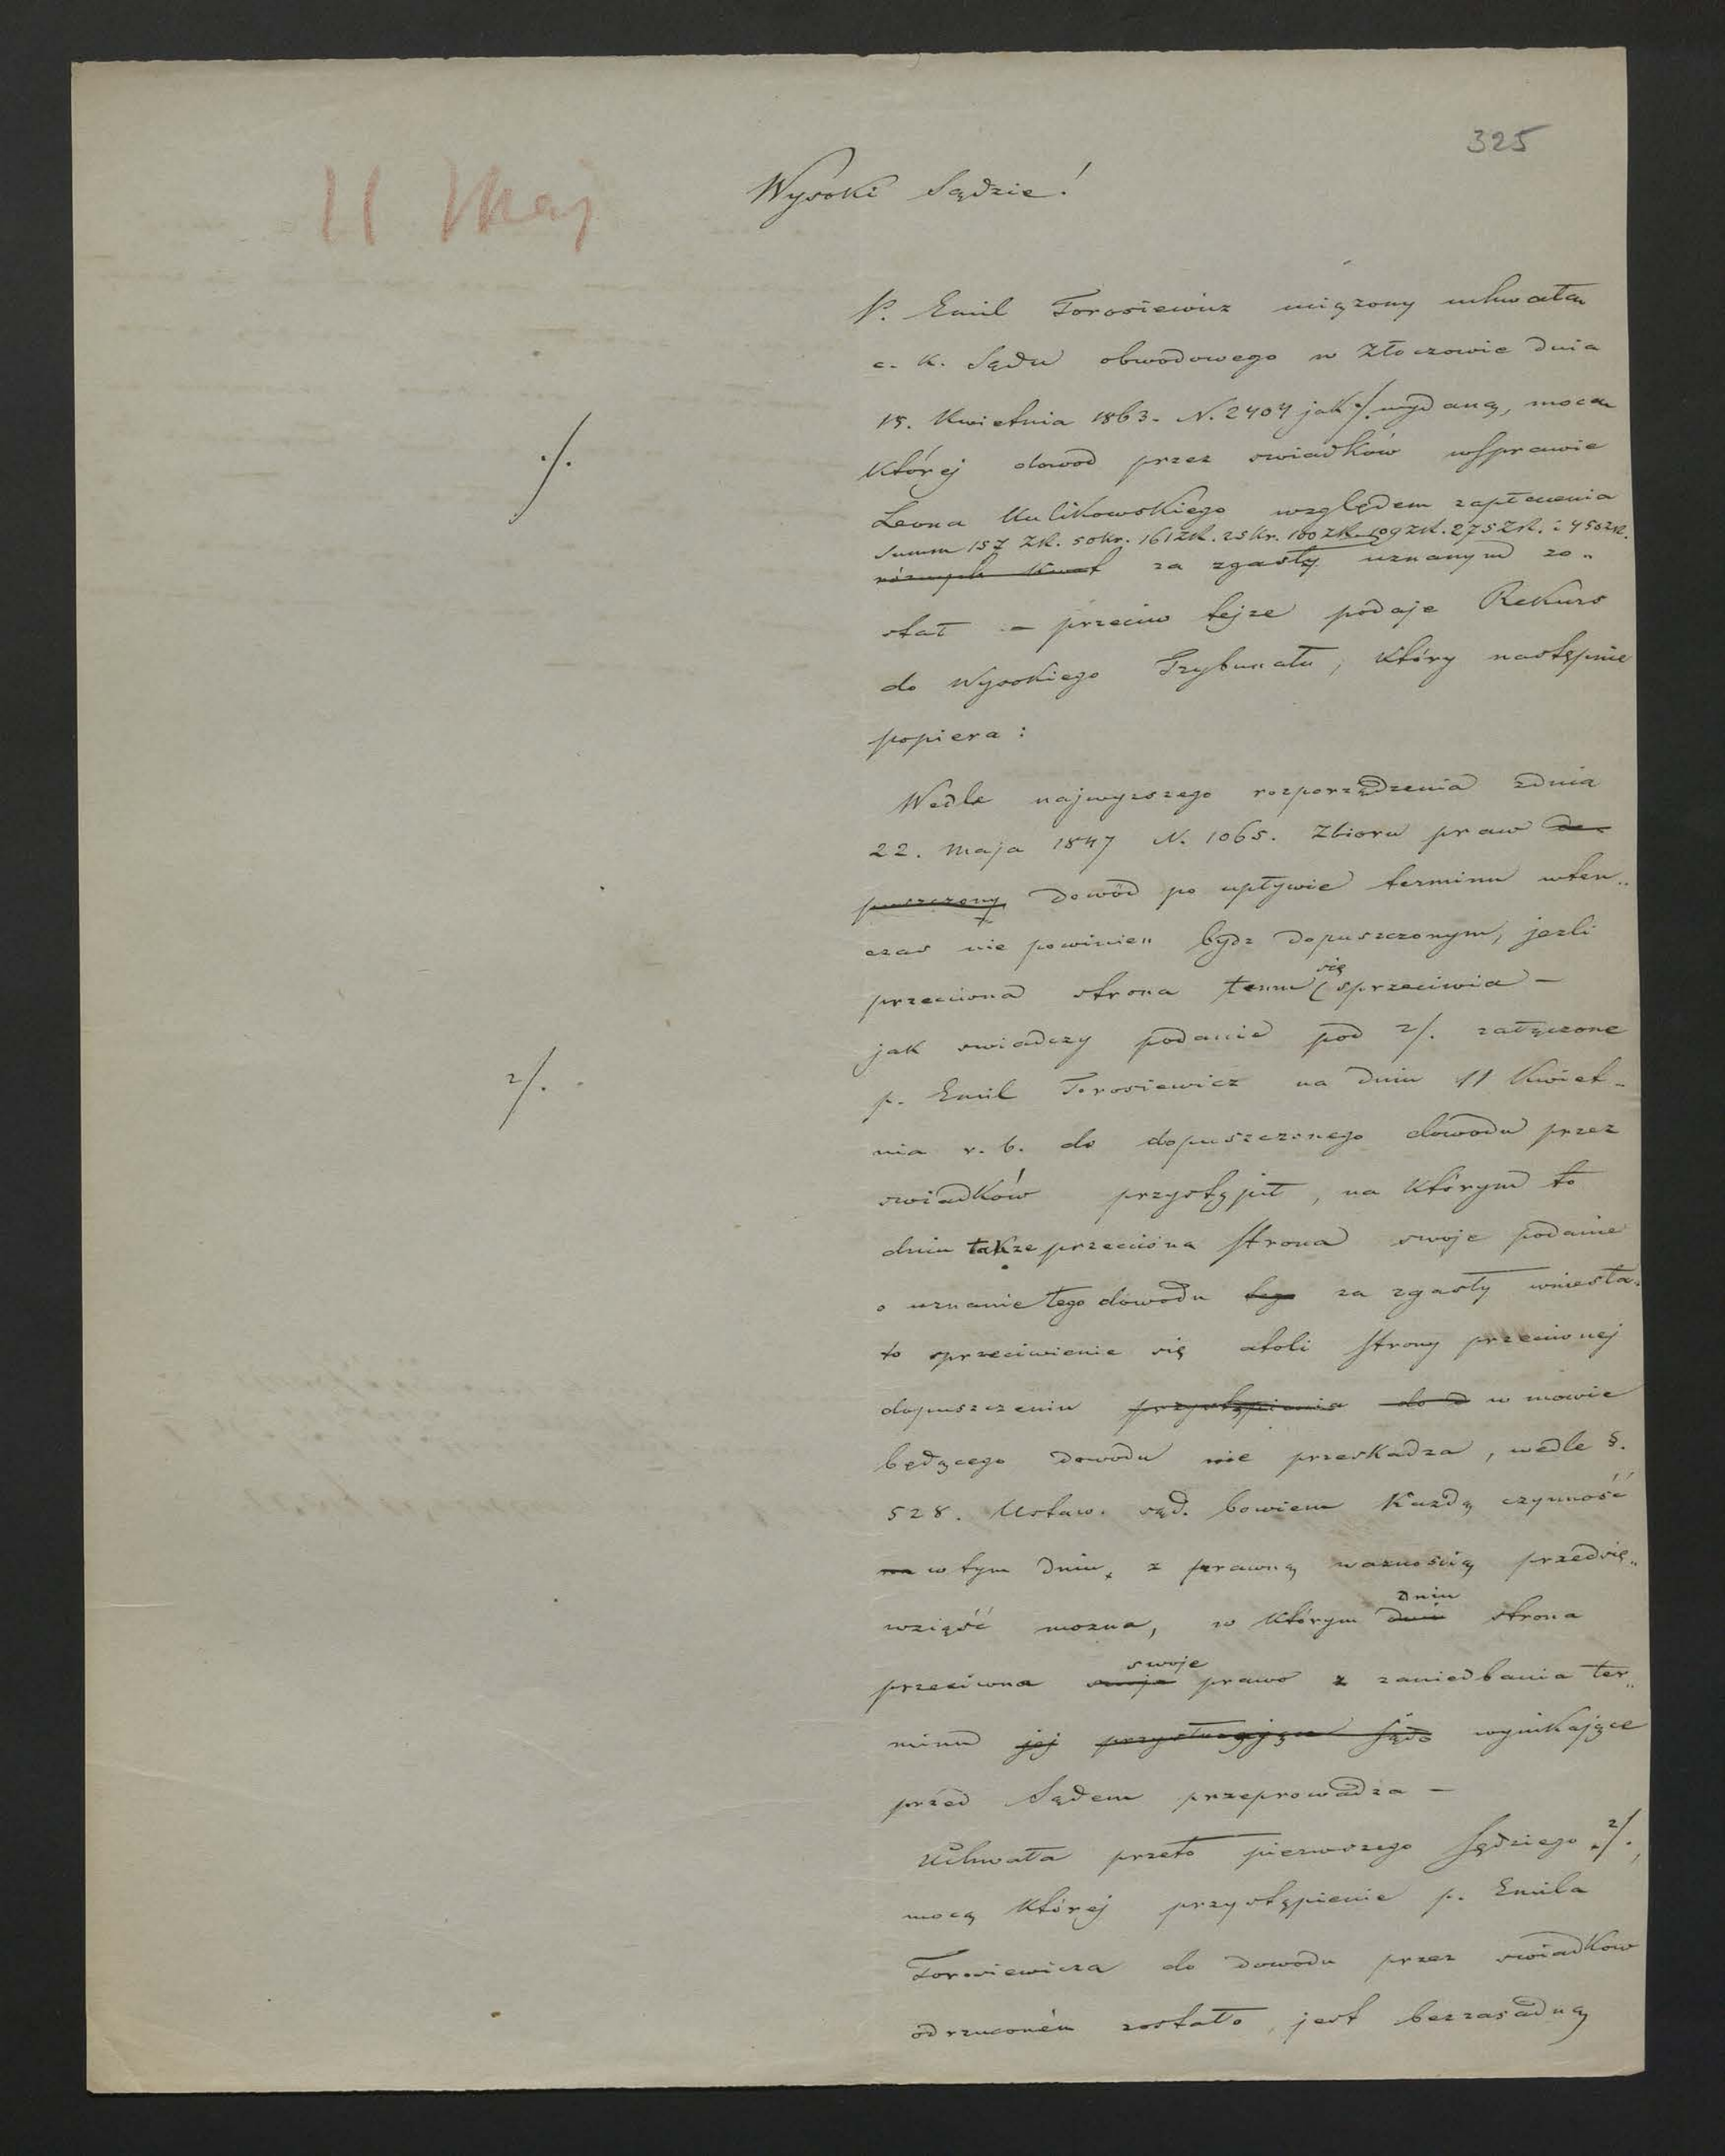 325
11 Maj
Wysoki Sądzie!
P. Emil Torosiewicz uciążony uchwałą
c. k. Sądu obwodowego w Złoczowie dnia
15. Kwietnia 1863. N. 2404 jak ./. wydaną, mocą
której dowod przez swiadków wsprawie
Leona Kulikowskiego względem zapłacenia
summ 157 ZR. 50 kr. 161 ZR. 25 kr. 100 ZR. 109 ZR. 275 ZR. i 450 ZR.
różnych kwot za zgasły uznanym zo„
stał – przeciw tejze podaje Rekurs
do Wysokiego Trybunału, który następnie
popiera:
Wedle najwyzszego rozporządzenia zdnia
22. Maja 1847 N. 1065. Zbioru praw do-
puszczony dowód po upływie terminu wten„
czas nie powinien bydz dopuszczonym, jezli
przeciwna strona temu się sprzeciwia –
jak swiadczy podanie pod 2/. załączone
p. Emil Torosiewicz na dniu 11 Kwiet-
nia r. b. do dopuszczonego dowodu przez
swiadków przystąpił, na którym to
dniu takze przeciwna strona swoje podanie
o uznanie tego dowodu tego za zgasły wniesła.
to sprzeciwienie się atoli strony przeciwnej
dopuszczeniu przystąpienia do d w mowie
będącego dowodu nie przeskadza, wedle §.
528. Ustaw. sąd. bowiem kazdą czynność
na w tym dniu, z prawną waznoscią przedsię„
wziąść mozna, w którym dniu dniu strona
przeciwna swoje swoje prawo z zaniedbania ter„
minu jej przysługujące Sądo wynikające
przed Sądem przeprowadza –
Uchwała przeto pierwszego Sędziego 2/.,
mocą której przystąpienie p. Emila
Torosiewicza do dowodu przez swiadków
odrzuconém zostało, jest bezzasadną
./.
2/.